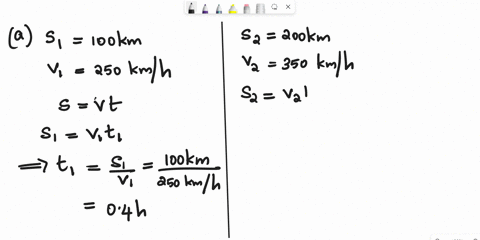 (a) S₁ = 100km
V₁ = 250 km/h
S = Vt
S₁ = V₁t₁
⟹ t₁ = S₁/V₁ = 100km/250 km/h
= 0.4h
S₂ = 200km
V₂ = 350 km/h
S₂ = V₂l